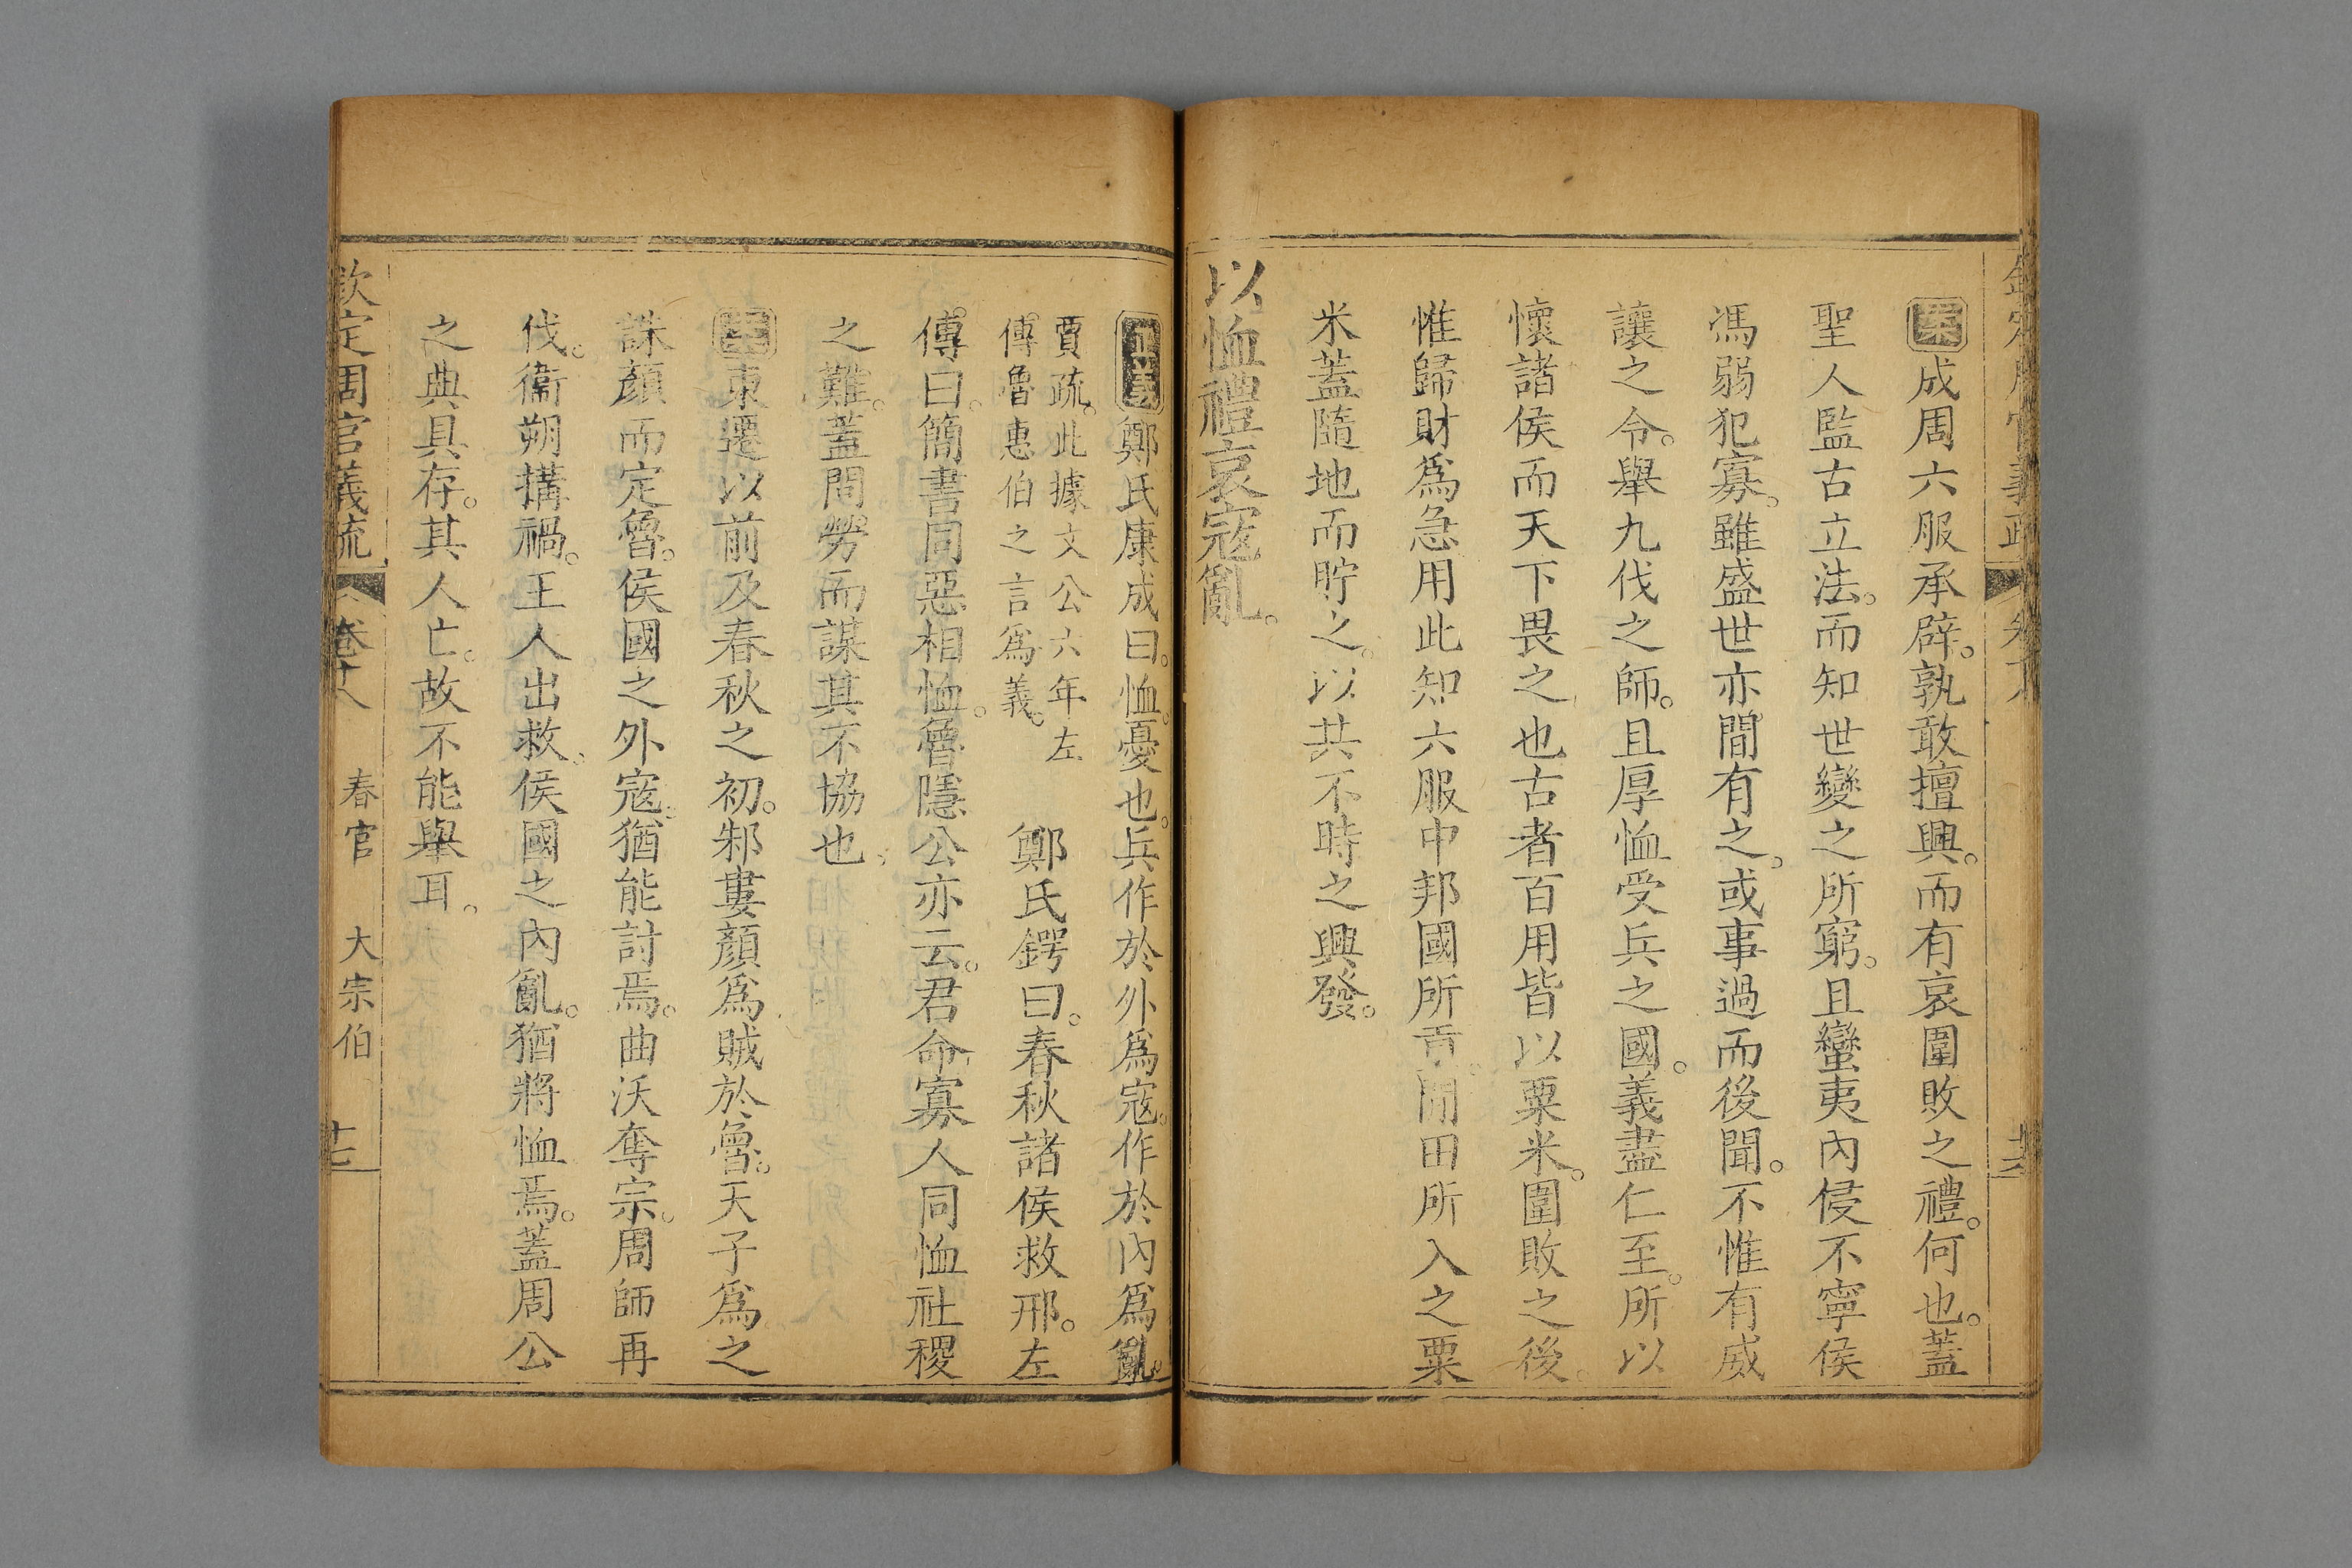 案成周六服承辟。孰敢擅興。而有哀圍敗之禮。何也。蓋
聖人監古立法。而知世變之所窮。且蠻夷內侵不寧侯
馮弱犯寡。雖盛世亦間有之。或事過而後聞。不惟有威
讓之令。舉九伐之師。且厚恤受兵之國。義盡仁至。所以
懷諸侯而天下畏之也古者百用皆以粟米。圍敗之後。
惟歸財爲急用此知六服中邦國所貢。閒田所入之粟
米蓋隨地而貯之。以共不時之興發。
以恤禮哀寇亂。
正義鄭氏康成曰。恤。憂也。兵作於外爲寇。作於內爲亂。
賈疏。此據文公六年左
傳。魯惠伯之言爲義。
鄭氏鍔曰。春秋諸侯救邢。左
傳曰。簡書同惡相恤。魯隱公亦云。君命寡人同恤社稷
之難。蓋閒勞而謀其不協也。
案東遷以前及春秋之初。邾婁顏爲賊於魯。天子爲之
誅顏而定魯。侯國之外寇。猶能討焉。曲沃奪宗。周師再
伐。衞朔搆禍。王人出救。侯國之內亂。猶將恤焉。蓋周公
之典具存。其人亡。故不能舉耳。
欽定周官義疏 卷十八 春官 大宗伯 十七